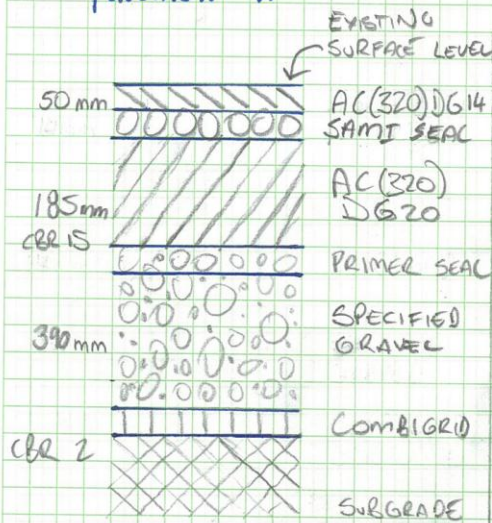 EXISTING
SURFACE LEVEL
50mm
AC(320)DG14
SAMI SEAL
AC(320)
DG20
185mm
CBR 15
PRIMER SEAL
SPECIFIED
GRAVEL
390mm
COMBIGRID
CBR 2
SUBGRADE